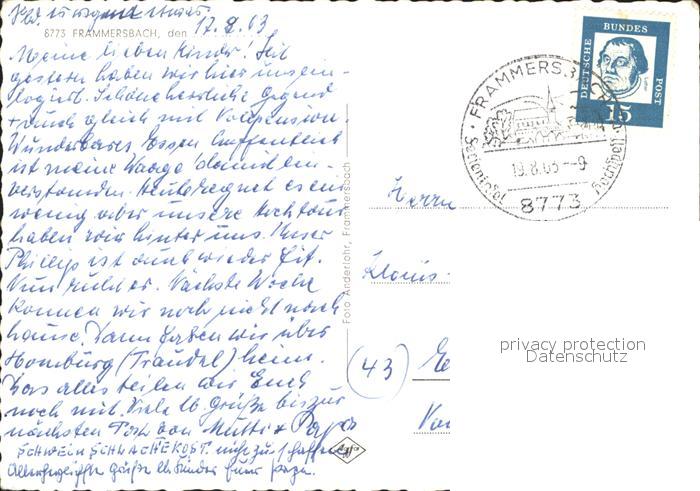 17.8.63
8773 FRAMMERSBACH, den
Meine lieben Kinder! Seit
gestern haben wir hier unsein-
logiert. Schöne herrliche Gegend
+ auch gleich mit Vollpension.
Wunderbares Essen hoffentlich
ist meine Waage damit ein-
verstanden. Heute regnet es ein
wenig aber unsere Kochtour
haben wir hinter uns. Unser
Phillip ist auch wieder fit.
Nun ruht er. Nächste Woche
kommen wir noch nicht nach
hause. Dann fahren wir über
Homburg (Traudel) heim.
Das alles teilen wir Euch
noch mit. Viele lb. Grüße bis zur
nächsten Post von Mutti + Papa
SCHWEIN SCHLACHTEKOST
Foto Anderlohr, Frammersbach
Agfa
DEUTSCHE BUNDES POST
Luther
15
FRAMMERSB
Ferienziel
19.8.63-9
8773
Herrn
Klaus
(43)
privacy protection
Datenschutz